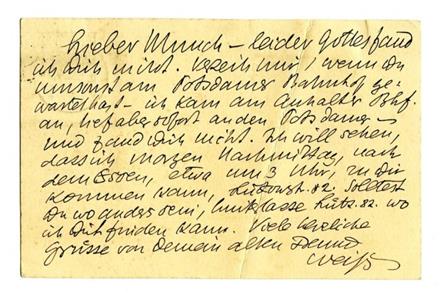 Lieber Munch – leider Gottes fand
ich Dich nicht. Verzeih mir, wenn Du
umsonst am Potsdamer Bahnhof ge-
wartet hast – ich kam am Anhalter Bhf.
an, lief aber sofort an den Potsdamer –
und fand Dich nicht. Ich will sehen,
dass ich morgen Nachmittag, nach
dem Essen, etwa um 3 Uhr, zu Dir
kommen kann, Lützowstr. 82. Solltest
Du wo anders sein, hinterlasse Lütz. 82. wo
ich Dich finden kann. Viele herzliche
Grüsse von Deinem alten Freund